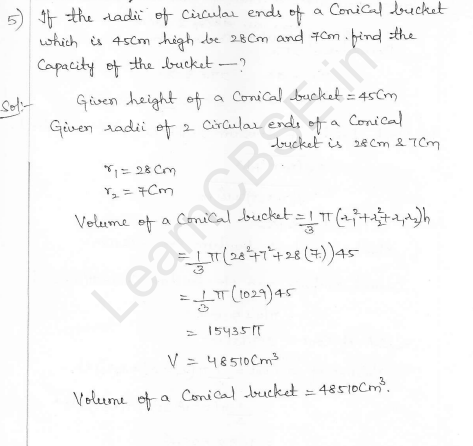 5) If the radii of circular ends of a Conical bucket
which is 45cm high be 28cm and 7cm. find the
Capacity of the bucket —?
Sol:- Given height of a Conical bucket = 45cm
Given radii of 2 Circular ends of a Conical
bucket is 28cm & 7cm
r₁ = 28cm
r₂ = 7cm
Volume of a Conical bucket = 1/3 π (r₁²+r₂²+r₁r₂)h
= 1/3 π (28²+7²+28(7))45
= 1/3 π (1029)45
= 15435π
V = 48510cm³
Volume of a Conical bucket = 48510cm³.
LearnCBSE.in